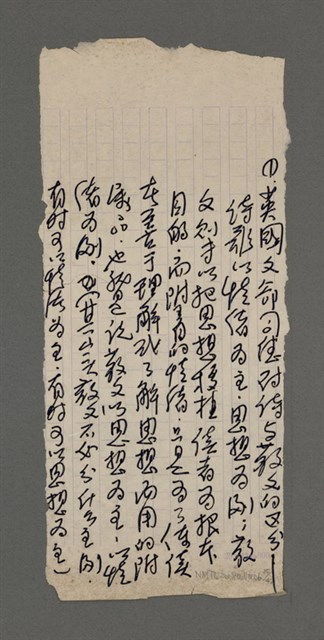 ①.英國文命司德对诗与散文的区分—
诗歌以情绪为主.思想为例；散
文则才以把思想移植读者为根本
目的.而附着的情绪.只是为了使读
者善于理解或了解思想而用的附
属品.也就是说散文以思想为主.以情
绪为例.（其实散文不必分什么主例.
有时可以情感为主.有时可以思想为主）